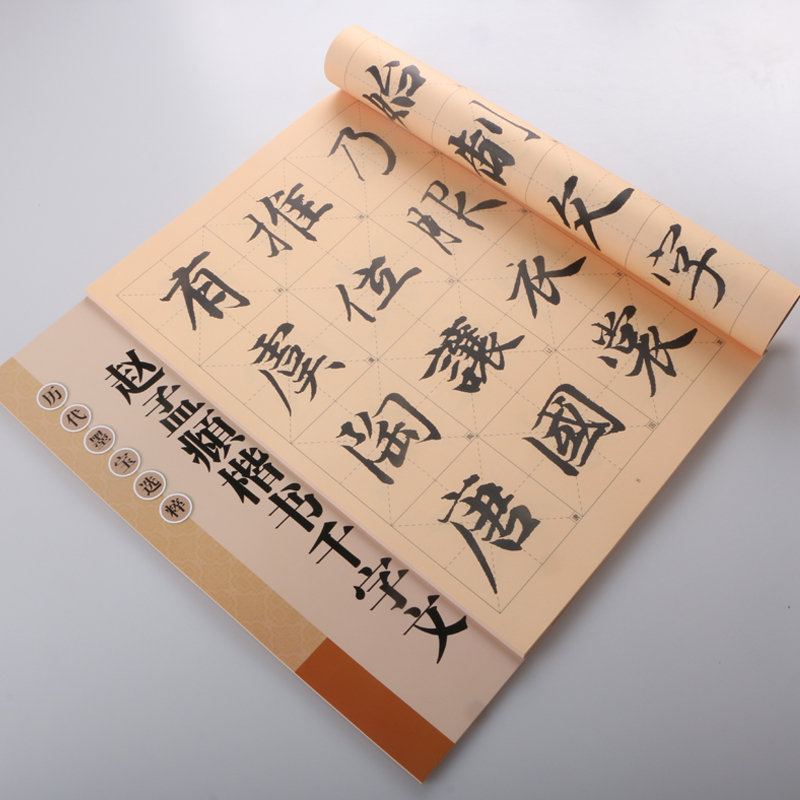 始制文字
乃服衣裳
推位讓國
有虞陶唐
赵孟頫楷书千字文
历代墨宝选粹